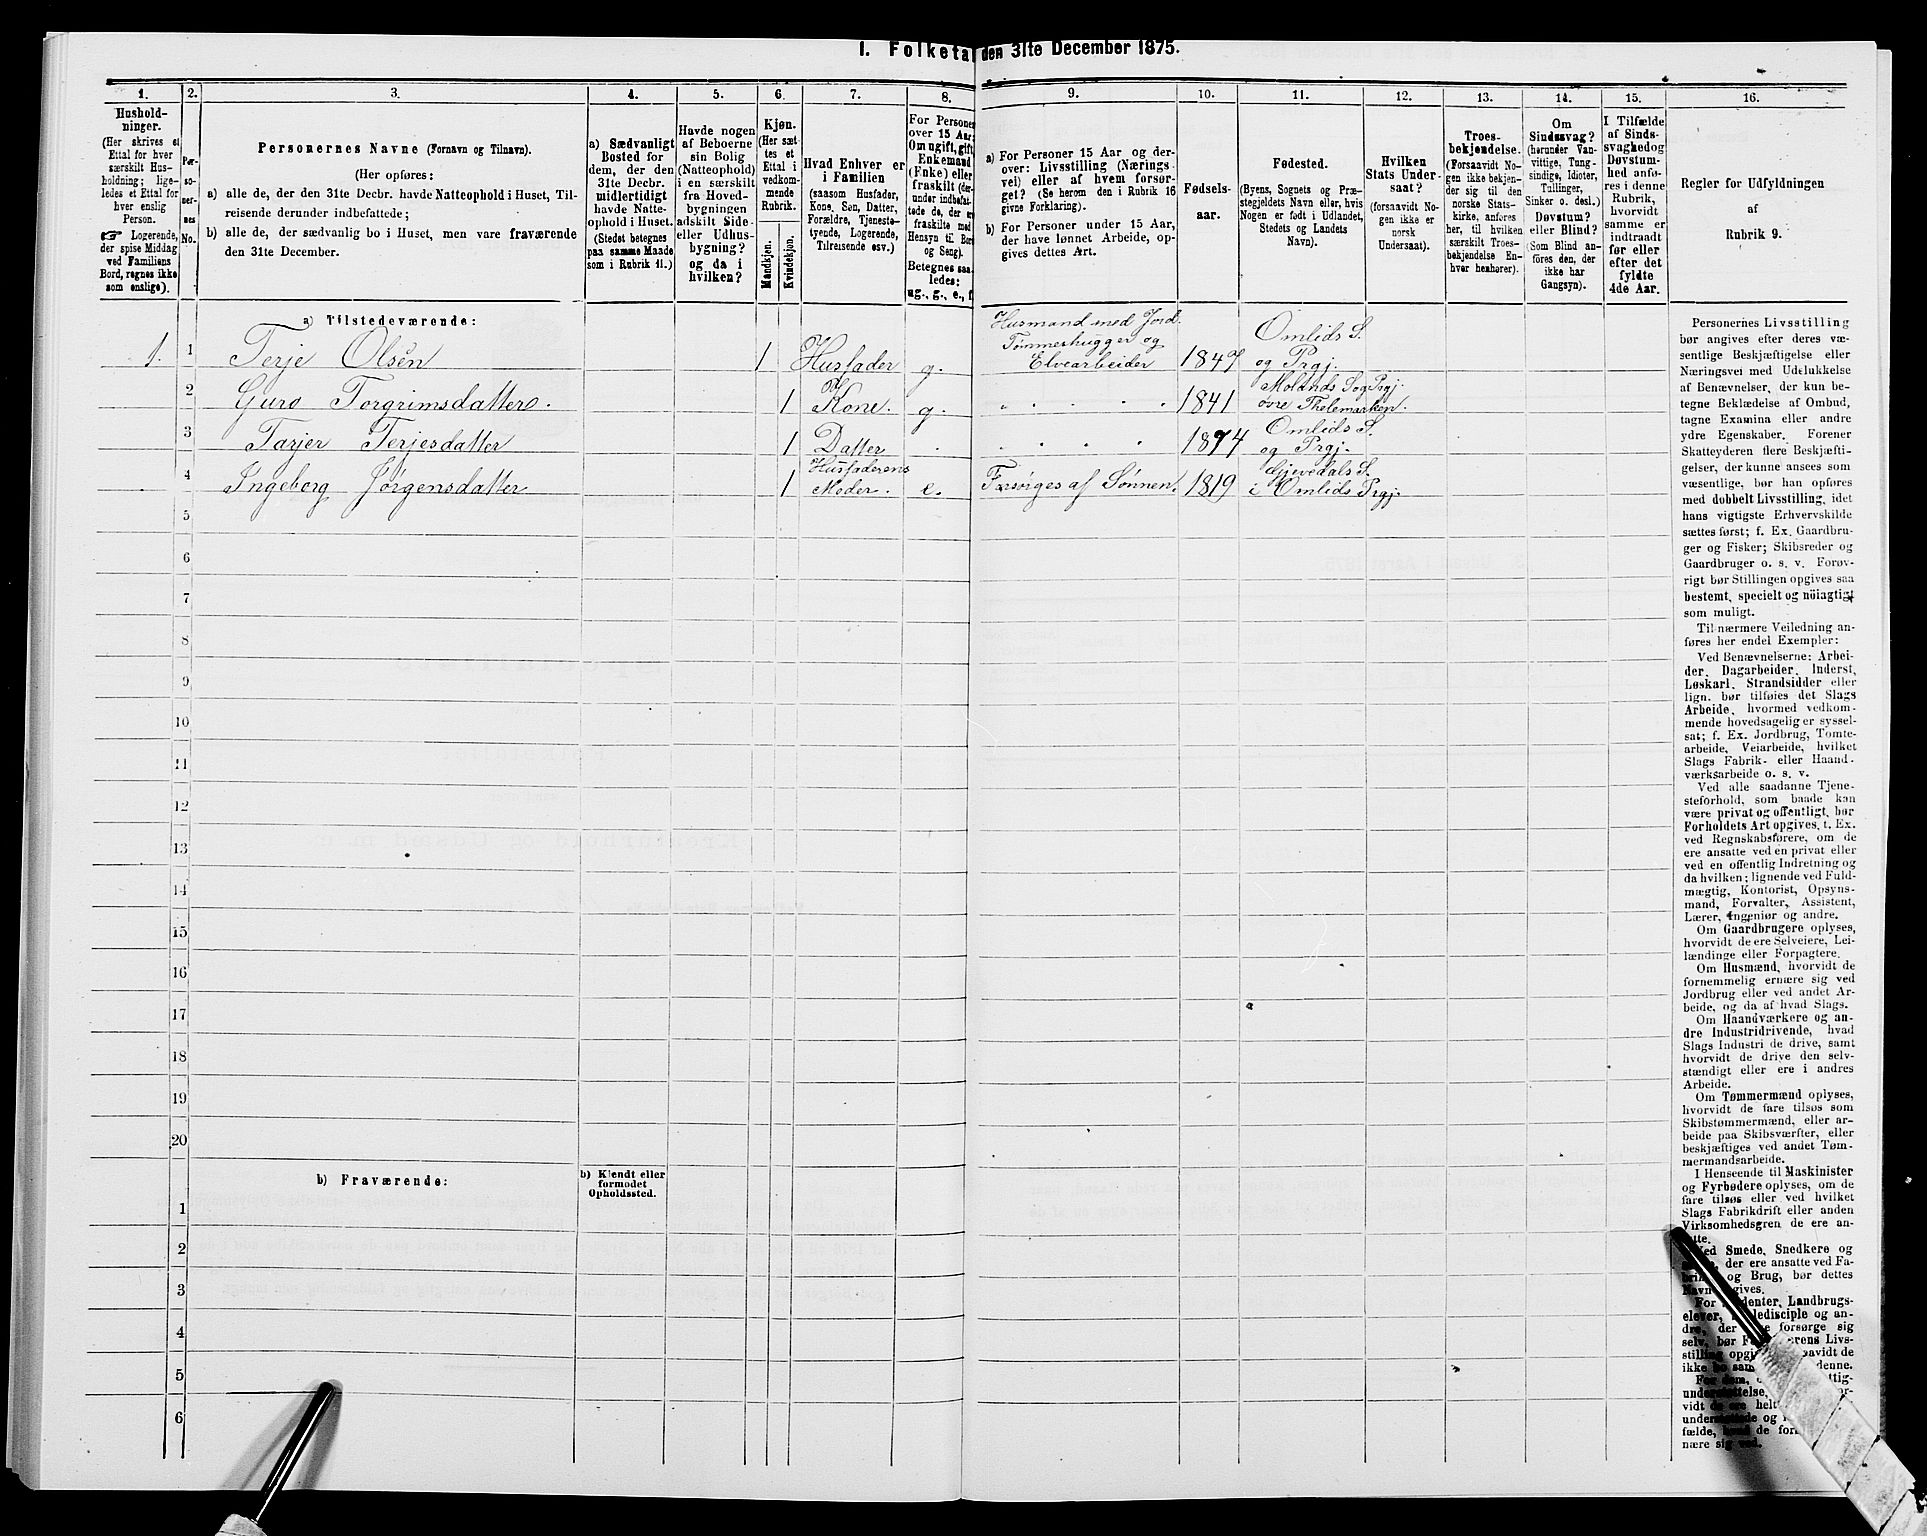 I. Folketal den 31te December 1875.
1. 2. 3. 4. 5. 6. 7. 8. 9. 10. 11. 12. 13. 14. 15. 16.
Hushold-
ninger.
(Her skrives et
Ettal for hver
særskilt Hus-
holdning; lige-
ledes et Ettal for
hver enslig
Person.
☞ Logerende,
der spise Middag
ved Familiens
Bord, regnes ikke
som enslige).
Per-
so-
ner-
nes
No.
Personernes Navne (Fornavn og Tilnavn).
(Her opføres:
a) alle de, der den 31te Decbr. havde Natteophold i Huset, Til-
reisende derunder indbefattede;
b) alle de, der sædvanlig bo i Huset, men vare fraværende
den 31te December.
a) Sædvanligt
Bosted for
dem, der den
31te Decbr.
midlertidigt
havde Natte-
ophold i Huset.
(Stedet betegnes
paa samme Maade
som i Rubrik 11.)
Havde nogen
af Beboerne
sin Bolig
(Natteophold)
i en særskilt
fra Hoved-
bygningen
adskilt Side-
eller Udhus-
bygning?
og da i
hvilken?
Kjøn.
(Her sæt-
tes et
Ettal i
vedkom-
mende
Rubrik.
Mandkjøn.
Kvindekjøn.
Hvad Enhver er
i Familien
(saasom Husfader,
Kone, Søn, Datter,
Forældre, Tjeneste-
tyende, Logerende,
Tilreisende osv.)
For Personer
over 15 Aar:
Om ugift, gift,
Enkemand
(Enke) eller
fraskilt (der-
under indbefat-
tede de, der er
fraskilte med
Hensyn til Bord
og Seng).
Betegnes saa-
ledes:
ug., g., e., f.
a) For Personer 15 Aar og der-
over: Livsstilling (Nærings-
vei) eller af hvem forsør-
get? (Se herom den i Rubrik 16
givne Forklaring).
b) For Personer under 15 Aar,
der have lønnet Arbeide, op-
gives dettes Art.
Fødsels-
aar.
Fødested.
(Byens, Sognets og Præ-
stegjeldets Navn eller, hvis
Nogen er født i Udlandet,
Stedets og Landets
Navn).
Hvilken
Stats Under-
saat?
(forsaavidt No-
gen ikke er
norsk
Undersaat).
Troes-
bekjendelse.
(Forsaavidt No-
gen ikke bekjen-
der sig til den
norske Stats-
kirke, anføres
her, til hvilken
særskilt Troes-
bekjendelse En-
hver henhører).
Om
Sindssvag?
(herunder Van-
vittige, Tung-
sindige, Idioter,
Tullinger,
Sinker o. desl.)
Døvstum?
eller Blind?
(Som Blind an-
føres den, der
ikke har
Gangsyn).
I Tilfælde
af Sinds-
svaghed og
Døvstum-
hed anfø-
res i denne
Rubrik,
hvorvidt
samme er
indtraadt
før eller
efter det
fyldte
4de Aar.
Regler for Udfyldningen
af
Rubrik 9.
a) Tilstedeværende:
1. 1 Terje Olsen 1 Husfader g. Husmand med Jord. Tømmerhugger og Elvearbeider 1847 Omlids S. og Prgj.
2 Guro Torgrimsdatter. 1 Kone. g. " " " " 1841 Molands Sog Prgj. øvre Thelemarken.
3 Tarjer Terjesdatter 1 Datter . " " " 1874 Omlids S. og Prgj.
4 Ingeborg Jørgensdatter 1 Husfaderens Moder. e. Forsørges af Sønnen. 1819 Gjevedals S. i Omlids Prgj.
5
6
7
8
9
10
11
12
13
14
15
16
17
18
19
20
b) Fraværende:
b) Kjendt eller
formodet
Opholdssted.
1
2
3
4
5
6
Personernes Livsstilling
bør angives efter deres væ-
sentlige Beskjæftigelse eller
Næringsvei med Udelukkelse
af Benævnelser, der kun be-
tegne Beklædelse af Ombud,
tagne Examina eller andre
ydre Egenskaber. Forener
Skatteyderen flere Beskjæfti-
gelser, der kunne ansees som
væsentlige, bør han opføres
med dobbelt Livsstilling, idet
hans vigtigste Erhvervskilde
sættes først; f. Ex. Gaardbru-
ger og Fisker; Skibsreder og
Gaardbruger o. s. v. Forøv-
rigt bør Stillingen opgives saa
bestemt, specielt og nöiagtigt
som muligt.
Til nærmere Veiledning an-
føres her endel Exempler:
Ved Benævnelserne: Arbei-
der, Dagarbeider, Inderst,
Løskarl, Strandsidder eller
lign. bør tilføies det Slags
Arbeide, hvormed vedkom-
mende hovedsagelig er syssel-
sat; f. Ex. Jordbrug, Tomte-
arbeide, Veiarbeide, hvilket
Slags Fabrik- eller Haand-
værksarbeide o. s. v.
Ved alle saadanne Tjene-
steforhold, som baade kan
være privat og offentligt, bør
Forholdets Art opgives, t. Ex.
ved Regnskabsførere, om de
ere ansatte ved en privat eller
ved en offentlig Indretning og
da hvilken; lignende ved Fuld-
mægtig, Kontorist, Opsyns-
mand, Forvalter, Assistent,
Lærer, Ingeniør og andre.
Om Gaardbrugere oplyses,
hvorvidt de ere Selveiere, Lei-
lændinge eller Forpagtere.
Om Husmænd, hvorvidt de
fornemmelig ernære sig ved
Jordbrug eller ved andet Ar-
beide, og da af hvad Slags.
Om Haandværkere og an-
dre Industridrivende, hvad
Slags Industri de drive, samt
hvorvidt de drive den selv-
stændigt eller ere i andres
Arbeide.
Om Tømmermænd oplyses,
hvorvidt de fare tilsøs som
Skibstømmermænd, eller ar-
beide paa Skibsværfter, eller
beskjæftiges ved andet Tøm-
mermandsarbeide.
I Henseende til Maskinister
og Fyrbødere oplyses, om de
fare tilsøs eller ved hvilket
Slags Fabrikdrift eller anden
Virksomhedsgren de ere an-
satte.
Ved Smede, Snedkere og
der ere ansatte ved Fa-
og Brug, bør dettes
Navn opgives.
For Landbrugs-
elever, og an-
dre, der forsørge sig
selv, bør Livs-
stilling
ikke denne.
For dem,